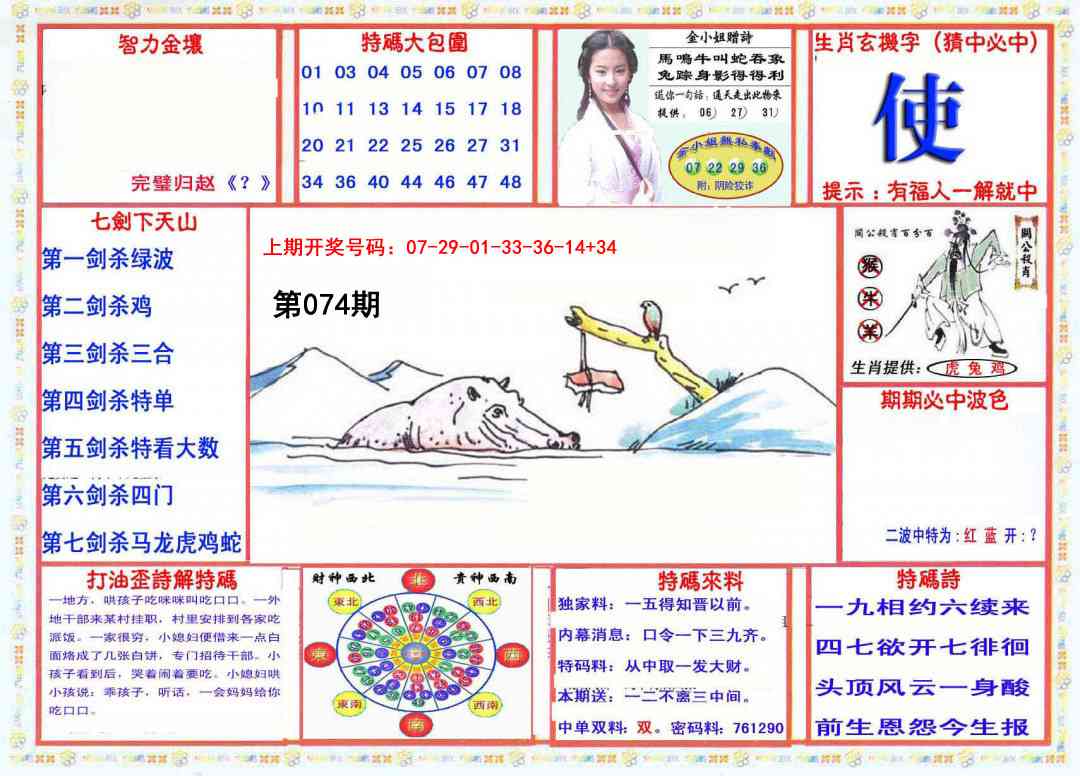 智力金壤
完璧归赵《？》
特碼大包圍
01 03 04 05 06 07 08
10 11 13 14 15 17 18
20 21 22 25 26 27 31
34 36 40 44 46 47 48
金小姐赠詩
馬鳴牛叫蛇吞象
兔踪身影得得利
送你一句话：通天走出此物来
提供： 06） 27） 31）
金小姐無私奉獻
07 22 29 36
附：阴险狡诈
生肖玄機字（猜中必中）
使
提示：有福人一解就中
七劍下天山
第一剑杀绿波
第二剑杀鸡
第三剑杀三合
第四剑杀特单
第五剑杀特看大数
第六剑杀四门
第七剑杀马龙虎鸡蛇
上期开奖号码：07-29-01-33-36-14+34
第074期
關公殺肖百分百
關公殺肖
猴
牛
羊
生肖提供：虎 兔 鸡
期期必中波色
二波中特为：红 蓝 开：？
打油歪詩解特碼
一地方，哄孩子吃咪咪叫吃口口。一外
地干部来某村挂职，村里安排到各家吃
派饭。一家很穷，小媳妇便借来一点白
面烙成了几张白饼，专门招待干部。小
孩子看到后，哭着闹着要吃。小媳妇哄
小孩说：乖孩子，听话，一会妈妈给你
吃口口。
財神西北
貴神西南
北
東北
西北
東
西
東南
西南
南
特碼來料
独家料：一五得知晋以前。
内幕消息：口令一下三九齐。
特码料：从中取一发大财。
本期送：一二不离三中间。
中单双料：双。密码料：761290
特碼詩
一九相约六续来
四七欲开七徘徊
头顶风云一身酸
前生恩怨今生报